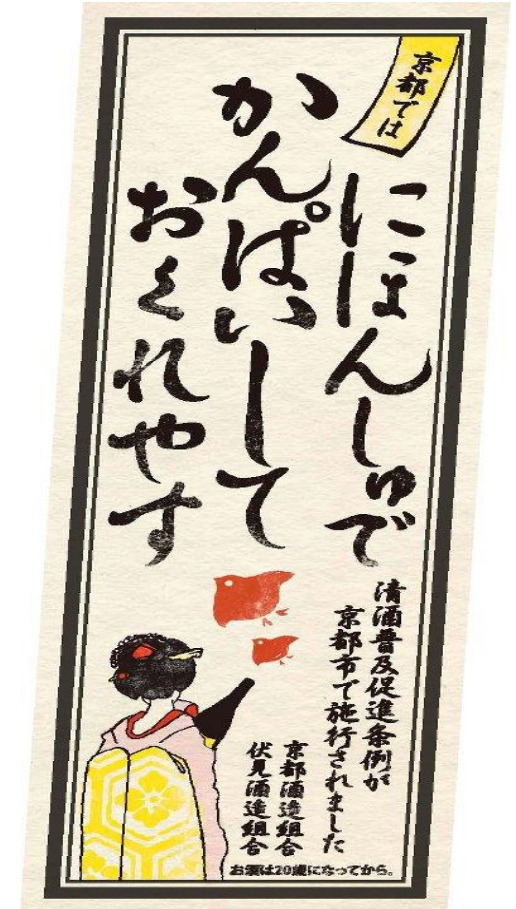 京都では
にほんしゅで
かんぱいして
おくれやす
清酒普及促進条例が
京都市で施行されました
京都酒造組合
伏見酒造組合
お酒は20歳になってから。